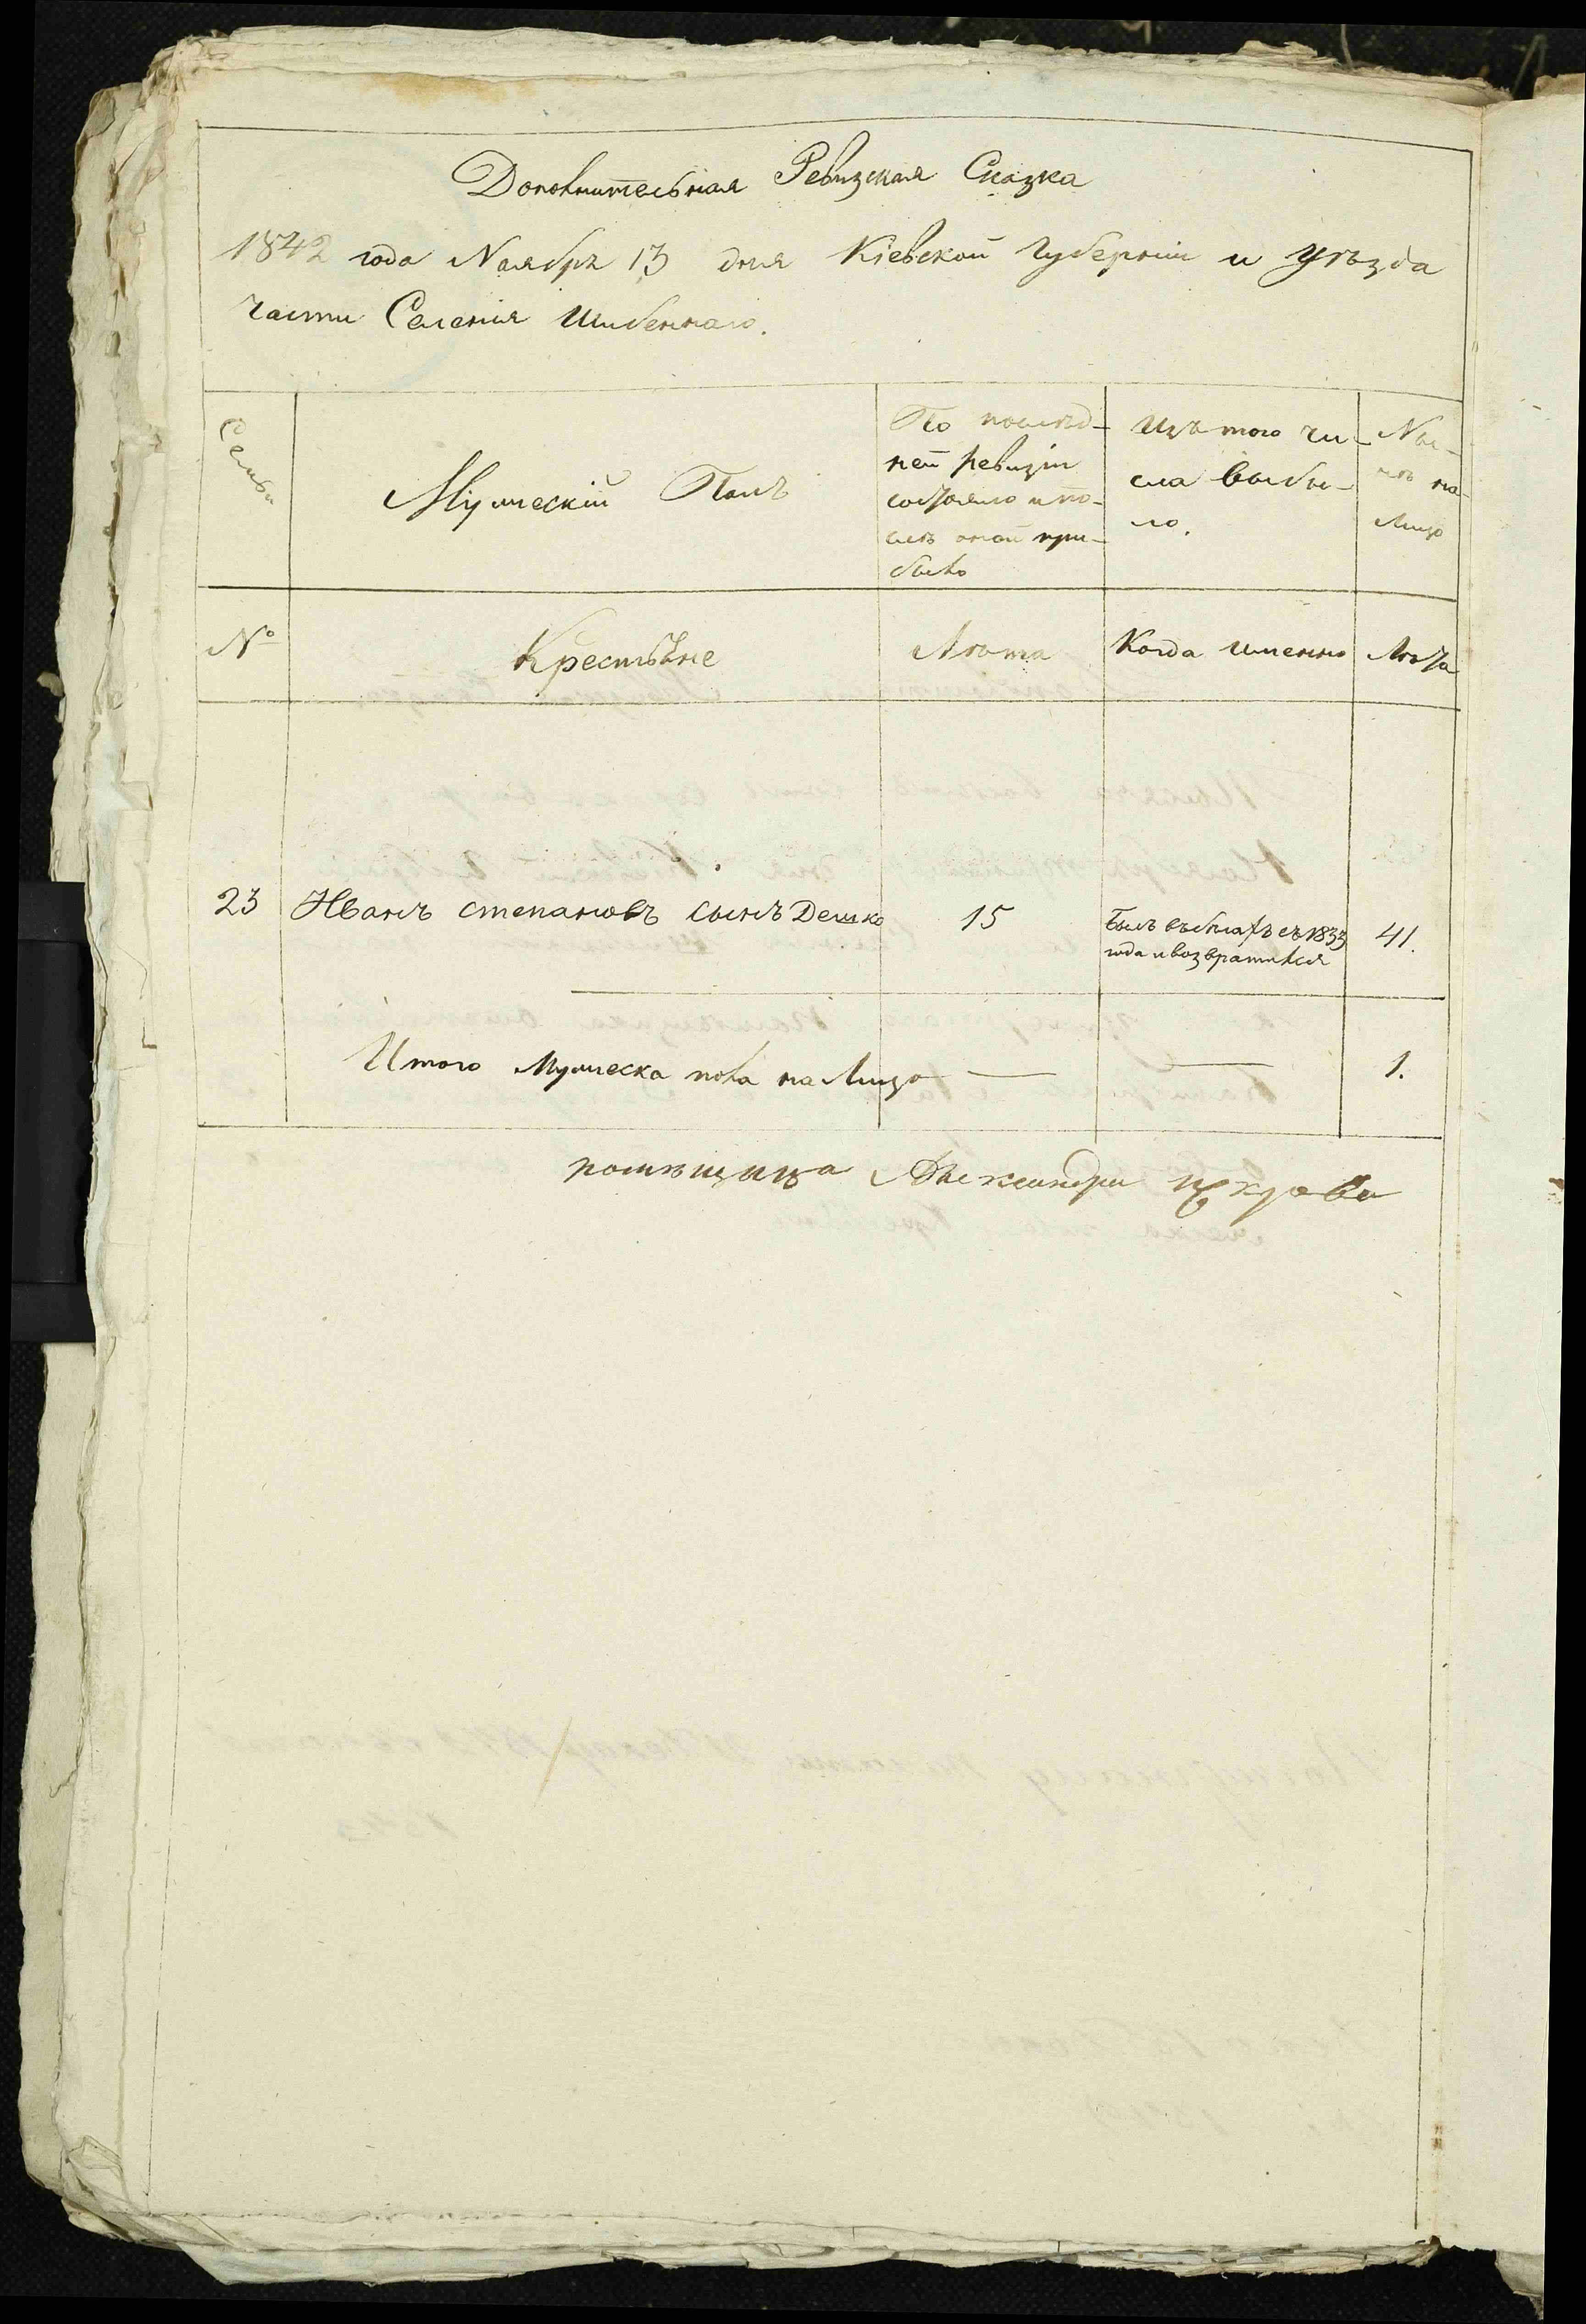 Дополнительная Ревизская Сказка
1842 года Ноября 13 дня Кіевской Губерніи и уѣзда
части Селенія Шибеннаго.
Семьи
Мужескій Полъ
По послѣд-
ней ревизіи
состояло и по-
слѣ оной при-
было
Изъ того чи-
сла выбы-
ло.
Ны-
нѣ на-
лицо
№
Крестьяне
Лѣта
Когда именно
Лѣта
23
Иванъ Степановъ сынъ Дешко
15
Былъ въ бѣгахъ съ 1833
года и возвратился
41.
Итого Мужеска пола на лицо — — 1.
помѣщица Александра